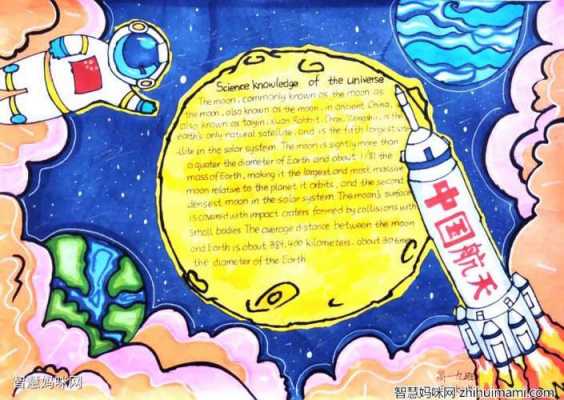 Science knowledge of the universe
The moon, commonly known as the moon as
the moon, also known as the moon, in ancient China,
also known as taiyin, Xuan Rabbit, Chan, is the
earth's only natural satellite, and is the fifth largest
llite in the solar system. The moon is slightly more than
a quater the diameter of Earth and about 1/81 the
mass of Earth, making it the largest and most massive
moon relative to the planet it orbits, and the second
densest moon in the solar system. The moon's surface
is covered with impact craters formed by collisions with
small bodies. The average distance between the moon
and Earth is about 384,400 kilometers, about 30 times
the diameter of the Earth
中国航天
智慧妈咪网
智慧妈咪网 zhihuimami.com